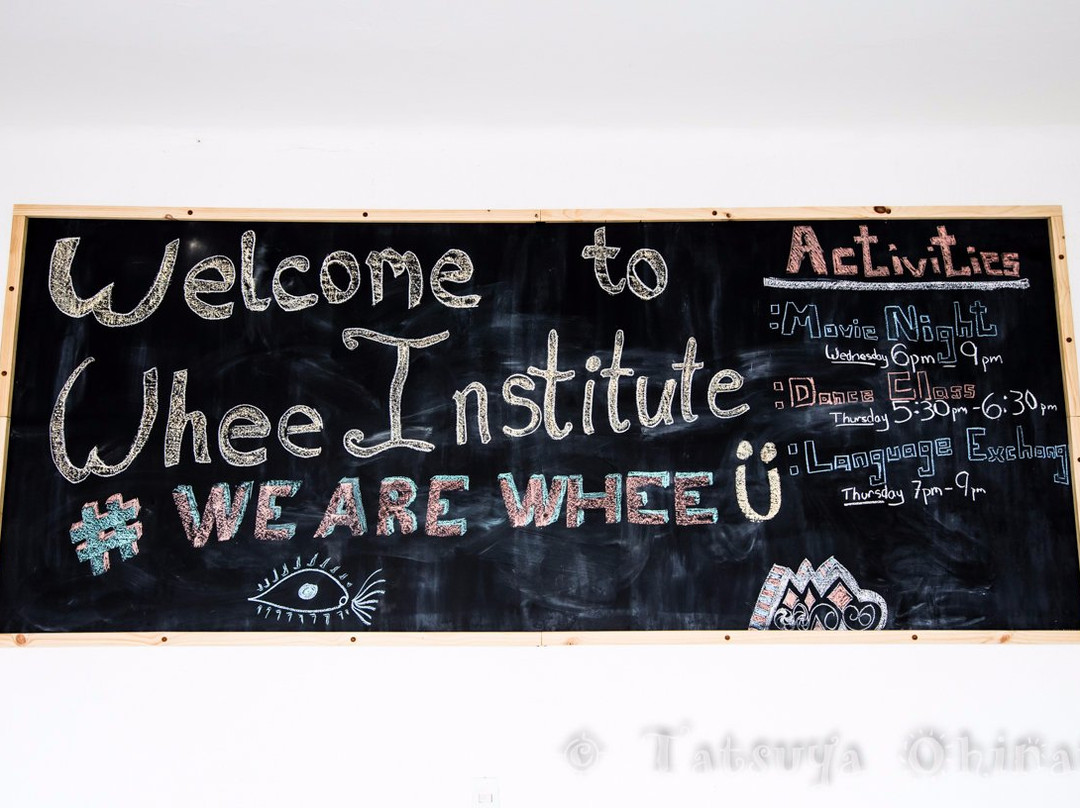 Welcome to
Whee Institute
# WE ARE WHEE Ü
Activities
:Movie Night
Wednesday 6pm - 9pm
:Dance Class
Thursday 5:30pm-6:30pm
:Language Exchang
Thursday 7pm-9pm
© Tatsuya Ohina